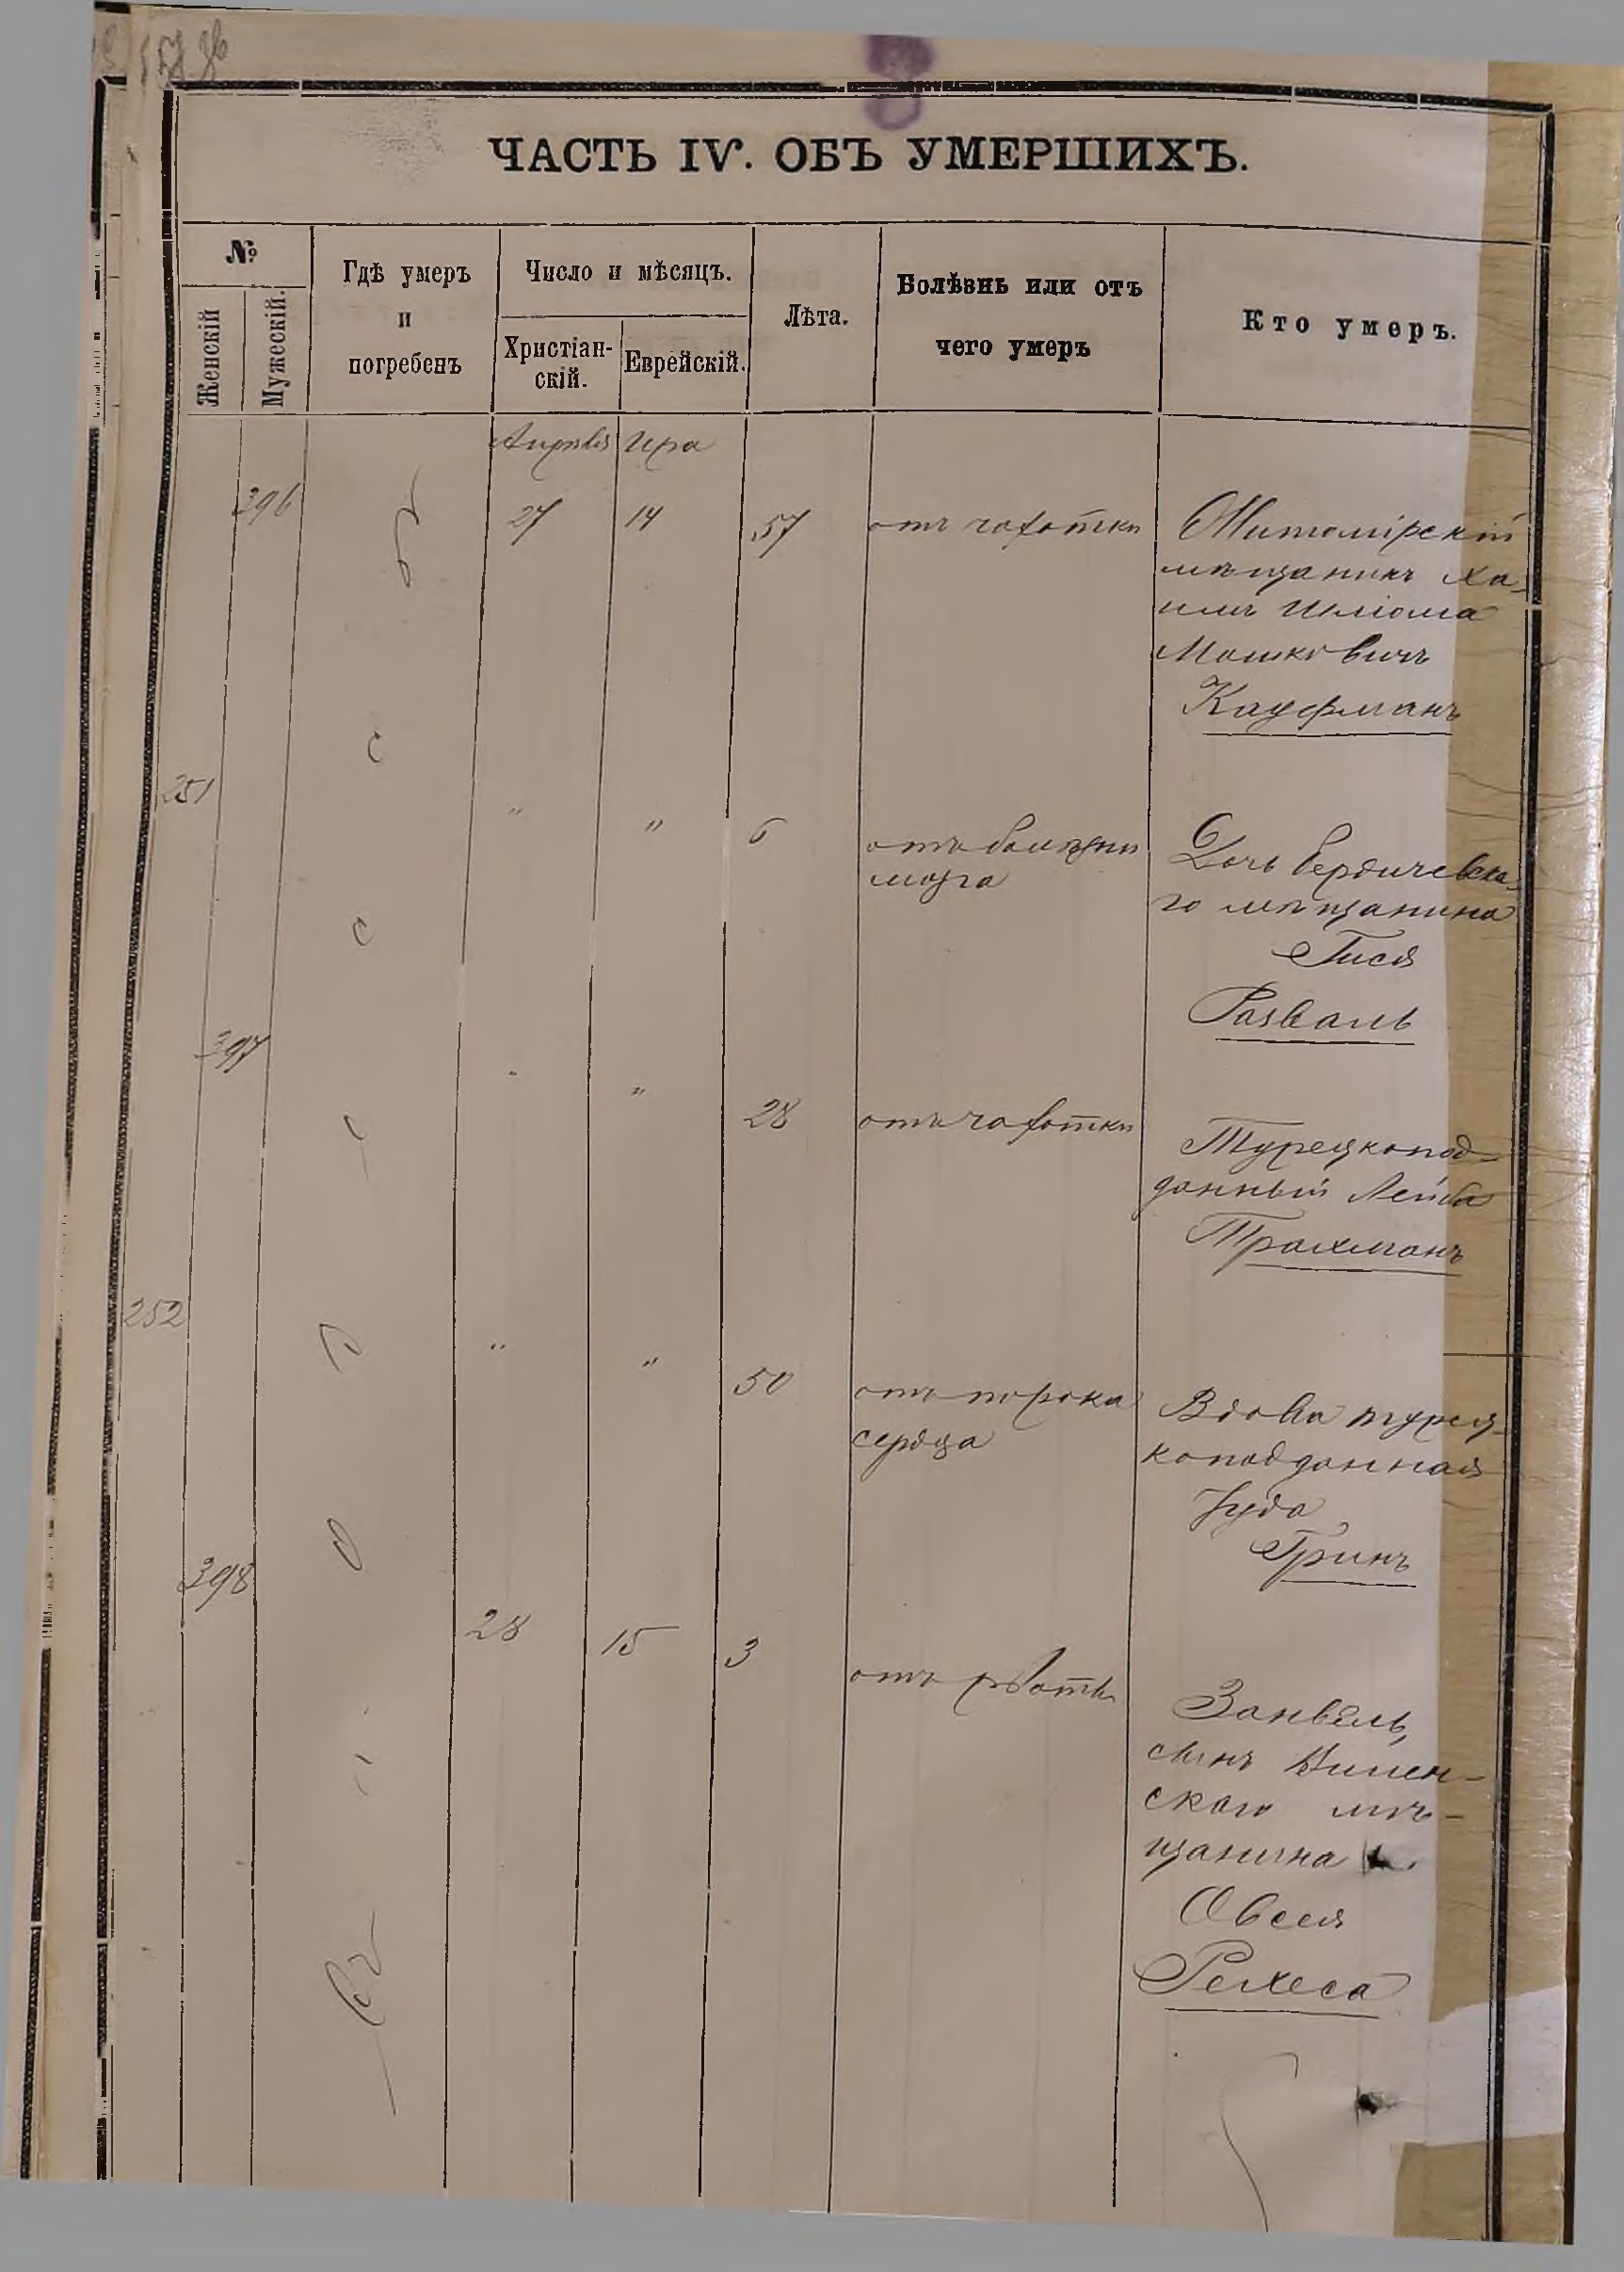 ЧАСТЬ IV. ОБЪ УМЕРШИХЪ.
№
Женскій
Мужескій.
Гдѣ умеръ
и
погребенъ
Число и мѣсяцъ.
Христіан-
скій.
Еврейскій.
Лѣта.
Болѣзнь или отъ
чего умеръ
Кто умеръ.
Апрѣля Ира
396 27 14 57 отъ чахотки Житомірскій
мѣщанинъ Ха-
имъ Шлiома
Мошковичъ
Кауфманъ
251 " " 6 отъ болѣзни
мозга
Дочь бердичевска-
го мѣщанина
Гися
Развалъ
397 " " 28 отъ чахотки
Турецкопод-
данный Лейба
Трахманъ
252 " " 50 отъ порока
сердца
Вдова турец-
коподданная
Гринъ
398 28 15 3 отъ рвоты
Занвель,
сынъ Вилен-
скаго мѣ-
щанина
Овсея
Рехеса